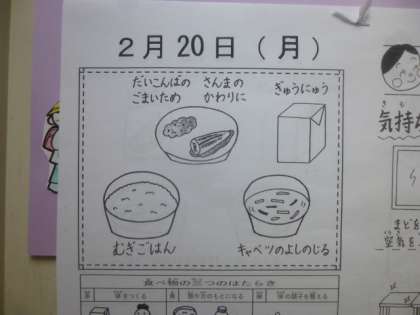 2月20日（月）
だいこんばの
ごまいため
さんまの
かわりに
ぎゅうにゅう
むぎごはん
キャベツのよしのじる
食べ物の三つのはたらき
気持
まどを
空気を